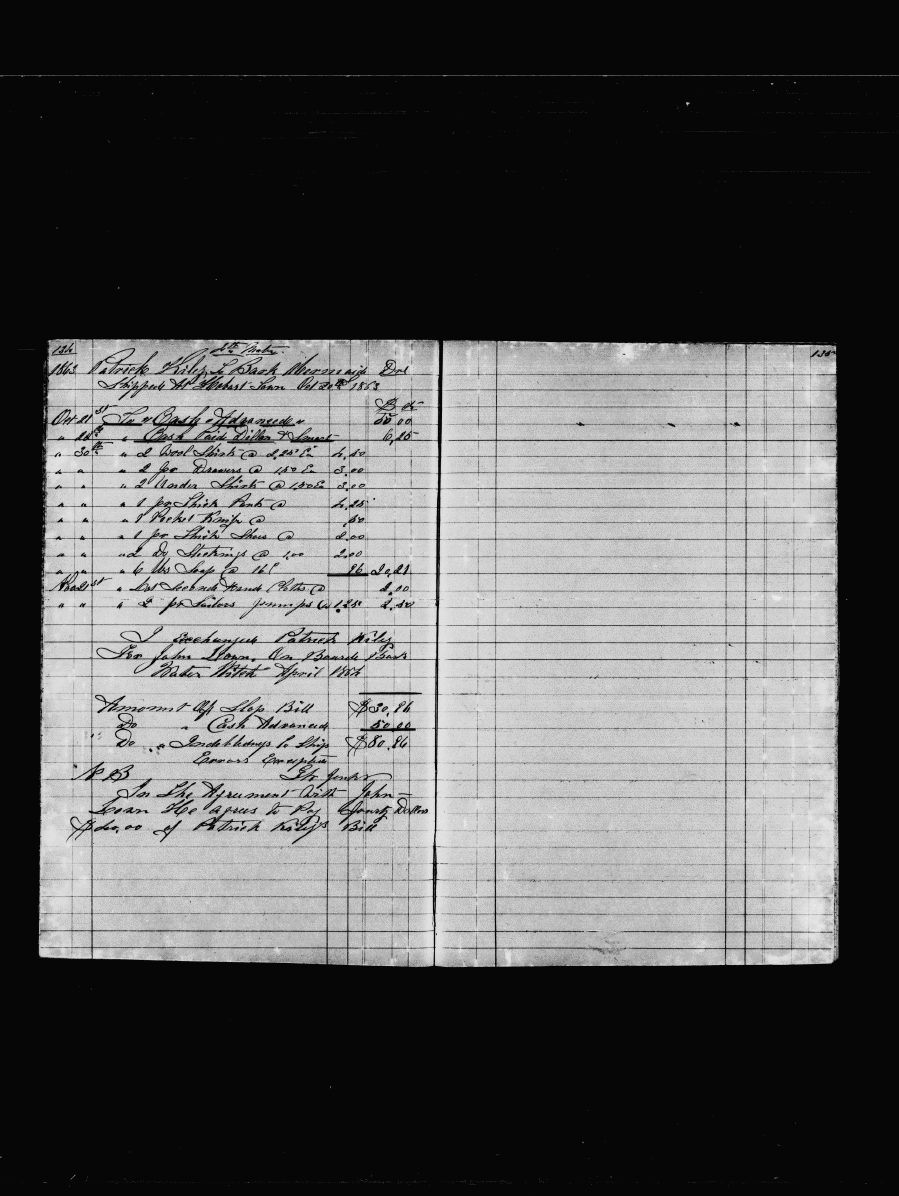 134
4th Mate
1863 Patrick Kiley To Bark Mermaid Dr
Shipped At Hobart Town Oct 20th 1863
$ cts
Oct 21st To " Cash Advanced " 50 00
" 24th " Cash Paid Dillon & 6,25
" 30th " 2 Wool Shirts @ 2,25 Ea 4,50
" " " 2 pr Drawers @ 1,50 Ea 3,00
" " " 2 Under Shirts @ 1,50 Ea 3,00
" " " 1 pr Thick Pants @ 4,25
" " " 1 Pocket Knife @ ,50
" " " 1 pr Thick Shoes @ 2,00
" " " 2 Do Stockings @ 1,00 2,00
" " " 6 lbs Soap @ 16c 96 20,21
Nov 21st " Second Hand Cloths @ 2,00
" " " 2 pr Sailors Jumpers @ 1,25 2,50
I Exchanged Patrick Kiley
For John Loan, On Board Bark
Water Witch April 1864
Amount Of Slop Bill $30,96
Do " Cash Advanced 50,00
Do " Indebtedness to Ship $80,96
Errors Excepted
N B
In The Agrument With John
Loan He agrees to Pay Fourty Dollars
$40,00 of Patrick Kileys Bill
135